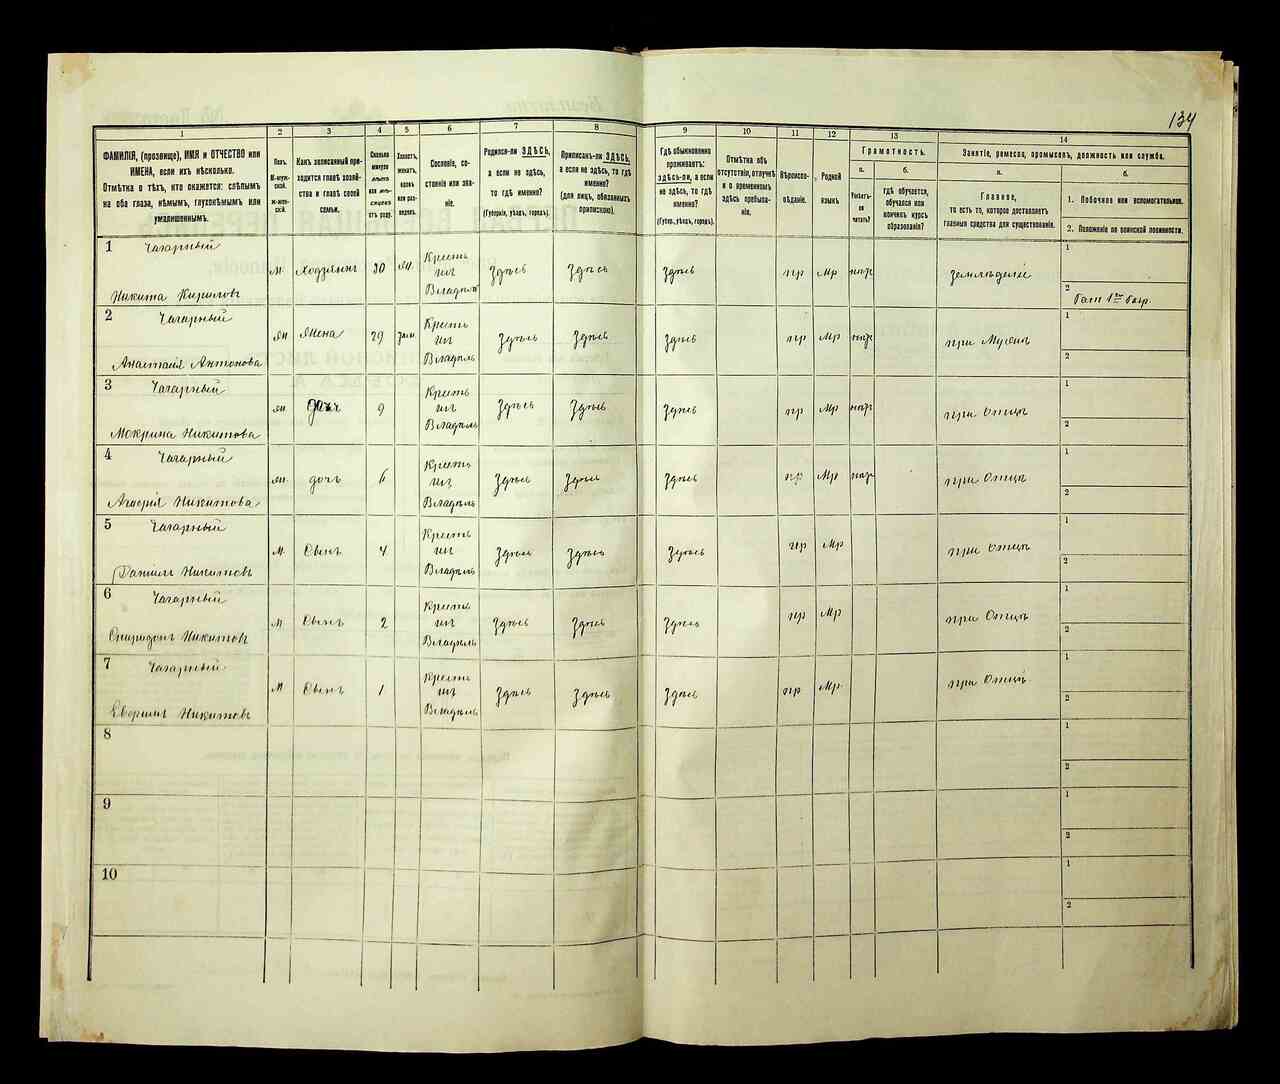 134
1 2 3 4 5 6 7 8 9 10 11 12 13 14
ФАМИЛІЯ, (прозвище), ИМЯ и ОТЧЕСТВО или
ИМЕНА, если ихъ нѣсколько.
Отмѣтка о тѣхъ, кто окажется: слѣпымъ
на оба глаза, нѣмымъ, глухонѣмымъ или
умалишеннымъ.
Полъ.
М-муж-
ской.
Ж-жен-
скій.
Какъ записанный при-
ходится главѣ хозяй-
ства и главѣ своей
семьи.
Сколько
минуло
лѣтъ
или мѣ-
сяцевъ
отъ роду.
Холостъ,
женатъ,
вдовъ
или раз-
веденъ.
Сословіе, со-
стояніе или зва-
ніе.
Родился-ли ЗДѢСЬ,
а если не здѣсь,
то гдѣ именно?
(Губернія, уѣздъ, городъ).
Приписанъ-ли ЗДѢСЬ,
а если не здѣсь, то гдѣ
именно?
(для лицъ, обязанныхъ
припискою).
Гдѣ обыкновенно
проживаетъ:
здѣсь-ли, а если
не здѣсь, то гдѣ
именно?
(Губерн., уѣздъ, городъ).
Отмѣтка объ
отсутствіи, отлучкѣ
и о временномъ
здѣсь пребыва-
ніи.
Вѣроиспо-
вѣданіе.
Родной
языкъ
Грамотность.
а.
Умѣетъ-
ли
читать?
б.
гдѣ обучается,
обучался или
кончилъ курсъ
образованія?
Занятіе, ремесло, промыселъ, должность или служба.
а.
Главное,
то есть то, которое доставляетъ
главныя средства для существованія.
б.
1. Побочное или вспомогательное.
2. Положеніе по воинской повинности.
1 Чагарный
Никита Кириловъ
М Хозяинъ 30 Крестъ Здѣсь Здѣсь Здѣсь пр Мр земледеліе
2
Чагарный
Анастасія Антонова
Жена 29 Крестъ Здѣсь Здѣсь Здѣсь пр Мр при Мужѣ
3 Чагарный
Мокрина Никитова
дочь 9 Крестъ Здѣсь Здѣсь Здѣсь пр Мр при Отцѣ
4 Чагарный
Агафія Никитова
дочь 6 Крестъ Здѣсь Здѣсь Здѣсь пр Мр при Отцѣ
5 Чагарный
Данiилъ Никитовъ
М Сынъ 4 Крестъ Здѣсь Здѣсь Здѣсь пр Мр при Отцѣ
6 Чагарный
Спиридонъ Никитовъ
М Сынъ 2 Крестъ Здѣсь Здѣсь Здѣсь пр Мр при Отцѣ
7 Чагарный
Никитовъ
М Сынъ 1 Крестъ Здѣсь Здѣсь Здѣсь пр Мр при Отцѣ
8
9
10